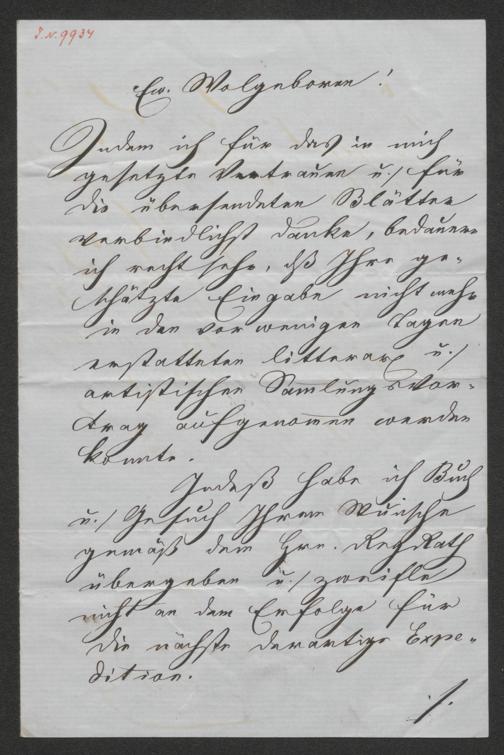 I.N. 9934
Ew. Wolgeboren!
Indem ich für das in mich
gesetzte Vertrauen u./ für
die übersendeten Blätter
verbindlichst danke, bedauere
ich recht sehr, dß Ihre ge-
schätzte Eingabe nicht mehr
in den vor wenigen Tagen
erstatteten litterar. u./
artistischen Samlungsvor-
trag aufgenommen werden
konnte.
Indeß habe ich Buch
u./ Gesuch Ihrem Wunsche
gemäß dem Hrn. RegRath
übergeben u./ zweifle
nicht an dem Erfolge für
die nächste derartige Expe-
dition.
./.